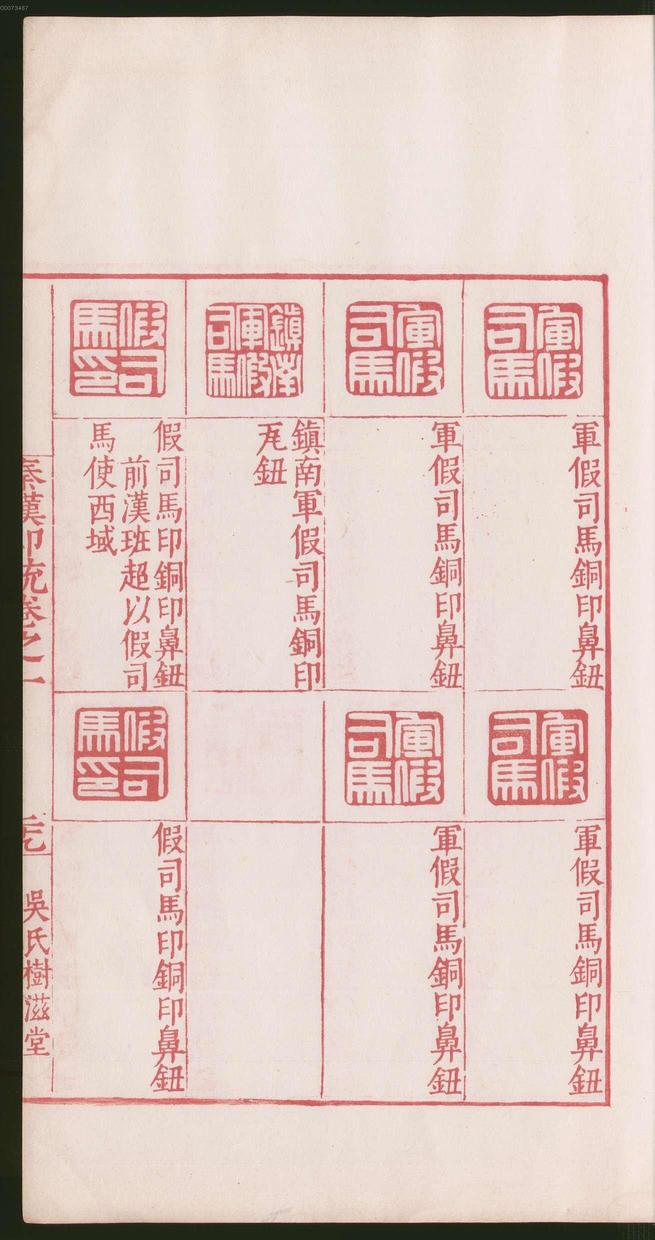 00073467
軍假司馬
軍假司馬銅印鼻鈕
軍假司馬
軍假司馬銅印鼻鈕
鎮南軍假司馬
鎮南軍假司馬銅印
瓦鈕
假司馬印
假司馬印銅印鼻鈕
前漢班超以假司
馬使西域
軍假司馬
軍假司馬銅印鼻鈕
軍假司馬
軍假司馬銅印鼻鈕
假司馬印
假司馬印銅印鼻鈕
秦漢印統卷之一
吳氏樹滋堂